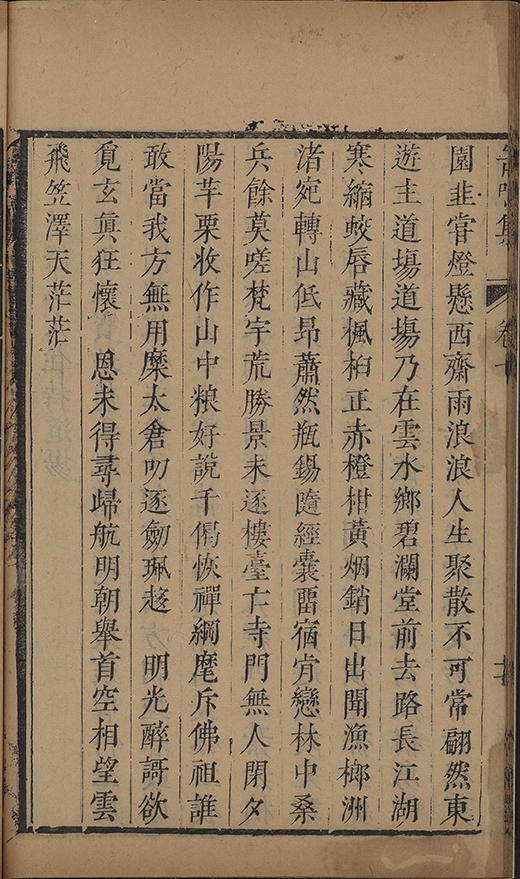 集 卷十
園韭嘗燈懸西齋雨浪浪人生聚散不可常翩然東
遊主道塲道塲乃在雲水鄉碧瀾堂前去路長江湖
寒縮蛟唇藏楓桕正赤橙柑黃烟銷日出聞漁榔洲
渚宛轉山低昂蕭然瓶錫隨經囊畱宿肯戀林中桑
兵餘莫嗟梵宇荒勝景未逐樓臺亡寺門無人閉夕
陽芋栗收作山中粮好說千偈恢禪綱麾斥佛祖誰
敢當我方無用糜太倉叨逐劒珮趍　明光醉謌欲
覓玄眞狂懷　恩未得尋歸航明朝舉首空相望雲
飛笠澤天茫茫